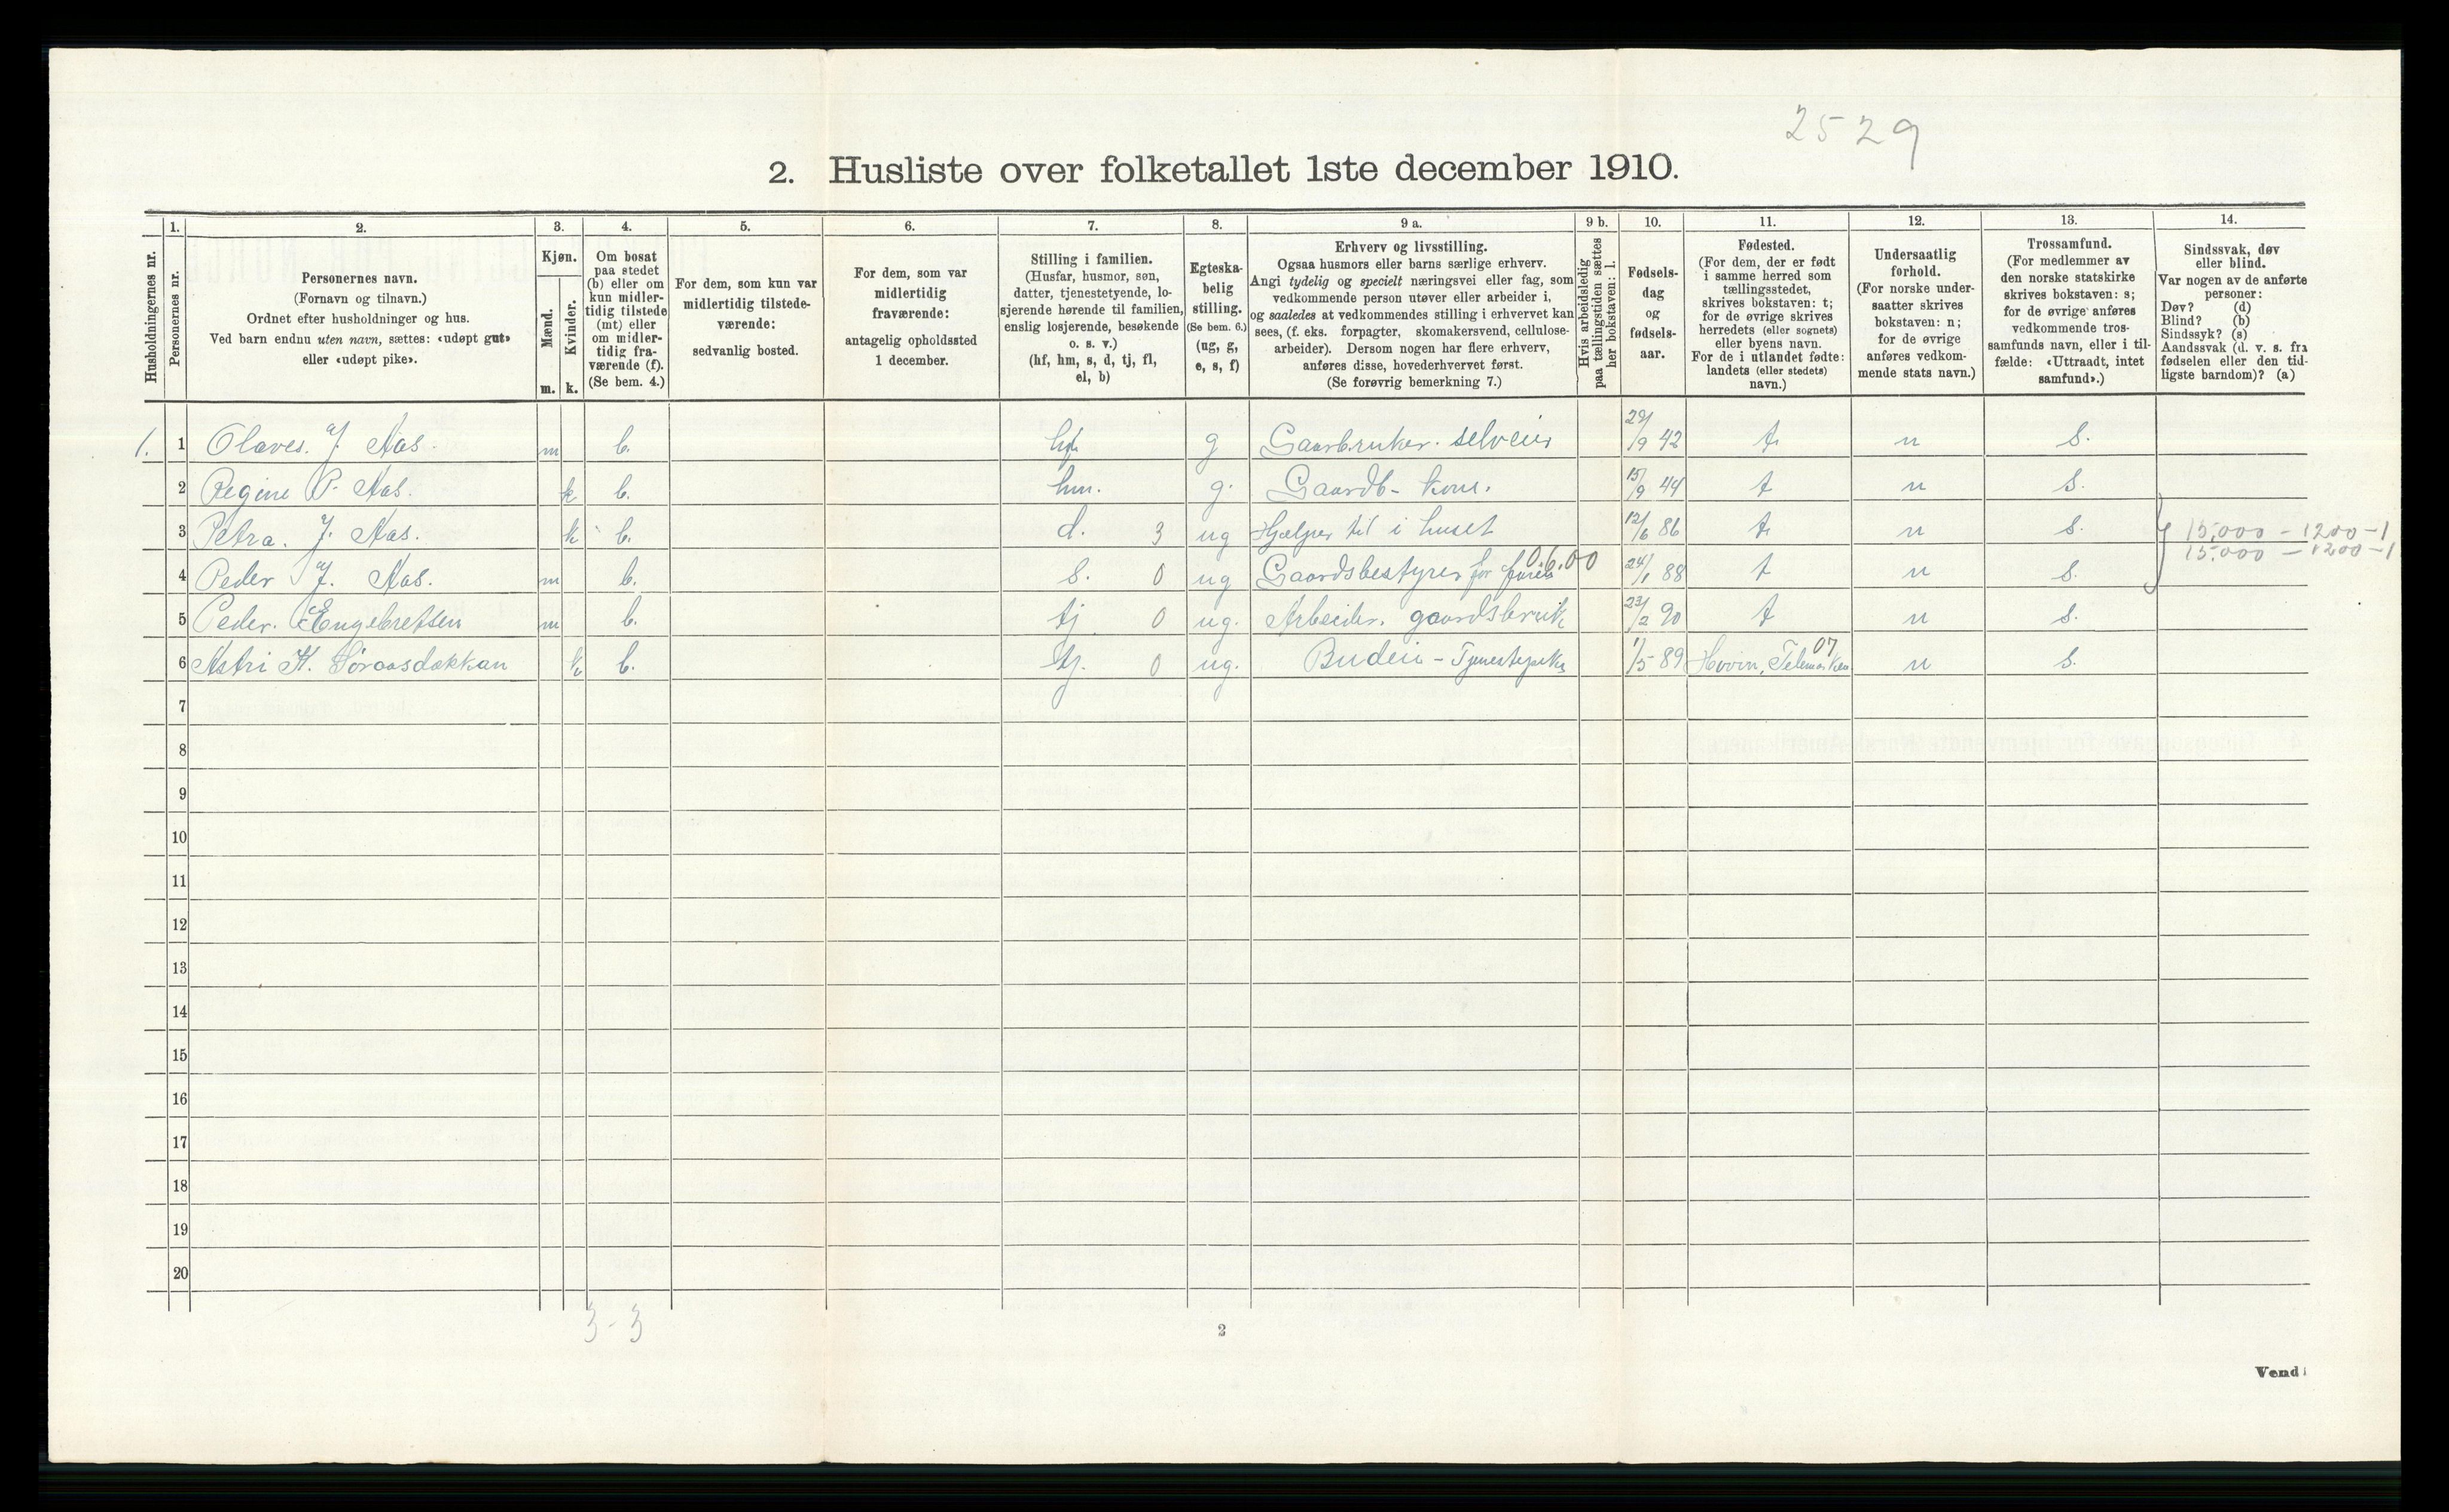 2529
2. Husliste over folketallet 1ste december 1910.
Husholdningernes nr.
1.
Personernes nr.
2.
Personernes navn.
(Fornavn og tilnavn.)
Ordnet efter husholdninger og hus.
Ved barn endnu uten navn, sættes: «udøpt gut»
eller «udøpt pike».
3.
Kjøn.
Mænd.
m.
Kvinder.
k.
4.
Om bosat
paa stedet
(b) eller om
kun midler-
tidig tilstede
(mt) eller
om midler-
tidig fra-
værende (f).
(Se bem. 4.)
5.
For dem, som kun var
midlertidig tilstede-
værende:
sedvanlig bosted.
6.
For dem, som var
midlertidig
fraværende:
antagelig opholdssted
1 december.
7.
Stilling i familien.
(Husfar, husmor, søn,
datter, tjenestetyende, lo-
sjerende hørende til familien,
enslig losjerende, besøkende
o. s. v.)
(hf, hm, s, d, tj, fl,
el, b)
8.
Egteska-
belig
stilling.
(Se bem. 6.)
(ug, g,
e, s, f)
9 a.
Erhverv og livsstilling.
Ogsaa husmors eller barns særlige erhverv.
Angi tydelig og specielt næringsvei eller fag, som
vedkommende person utøver eller arbeider i,
og saaledes at vedkommendes stilling i erhvervet kan
sees, (f. eks. forpagter, skomakersvend, cellulose-
arbeider). Dersom nogen har flere erhverv,
anføres disse, hovederhvervet først.
(Se forøvrig bemerkning 7.)
9 b.
Hvis arbeidsledig
paa tællingstiden sættes
her bokstaven: l.
10.
Fødsels-
dag
og
fødsels-
aar.
11.
Fødested.
(For dem, der er født
i samme herred som
tællingsstedet,
skrives bokstaven: t;
for de øvrige skrives
herredets (eller sognets)
eller byens navn.
For de i utlandet fødte:
landets (eller stedets)
navn.)
12.
Undersaatlig
forhold.
(For norske under-
saatter skrives
bokstaven: n;
for de øvrige
anføres vedkom-
mende stats navn.)
13.
Trossamfund.
(For medlemmer av
den norske statskirke
skrives bokstaven: s;
for de øvrige anføres
vedkommende tros-
samfunds navn, eller i til-
fælde: «Uttraadt, intet
samfund».)
14.
Sindssvak, døv
eller blind.
Var nogen av de anførte
personer:
Døv? (d)
Blind? (b)
Sindssyk? (s)
Aandssvak (d. v. s. fra
fødselen eller den tid-
ligste barndom)? (a)
1. 1 Olaves. J Aas. m b. hf. g Gaarbruker. selveier 29/9 42 t. n S.
2 Regine P. Aas. k b. hm. g. Gaardb- kone. 15/9 44 t n S.
3 Petra. J. Aas. k b. d. 3 ug Hjælper til i huset 12/6 86 t. n S. 15,000 - 1200 - 1
15.000 - 1200 - 1
4 Peder J. Aas. m b. s. 0 ug Gaardsbestyrer for faren 0.6.00 24/1 88 t n S.
5 Peder. Engebretsen m b. tj 0 ug. Arbeider. gaardsbruk 23/2 90 t n S.
6 Astri K. Søraasdækkan k b. tj. 0 ug. Budeie - Tjenestepike 1/5 89 Hovin, Telemarken 07 n S.
7
8
9
10
11
12
13
14
15
16
17
18
19
20
3-3
2
Vend!